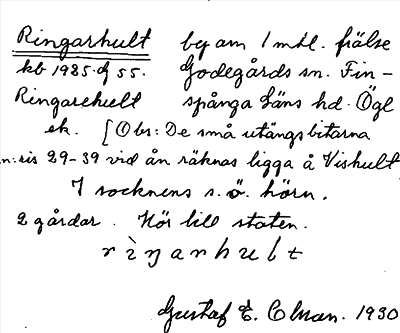 Ringarhult beg am 1 mtl. frälse
kb 1925. s 55. Godegårds sn. Fin-
Ringarehult spånga läns hd. Ögl
ek. [Obs: De små utängsbitarna
n:ris 29-39 vid ån räknas ligga å Vishult
I socknens s. ö. hörn.
2 gårdar. Hör till staten.
rìŋarhult
Gustaf E. Clason. 1930